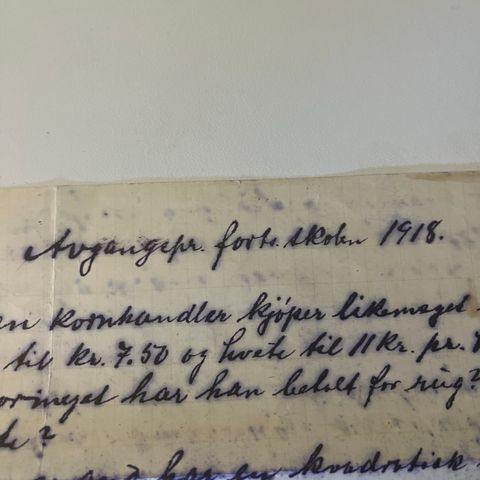 Avgangspr. forts. skolen 1918.
en kornhandler kjøper likemeget
til kr. 7.50 og hvete til 11 kr. pr.
ormeget har han betalt for rug?
te?
har en kvadratisk